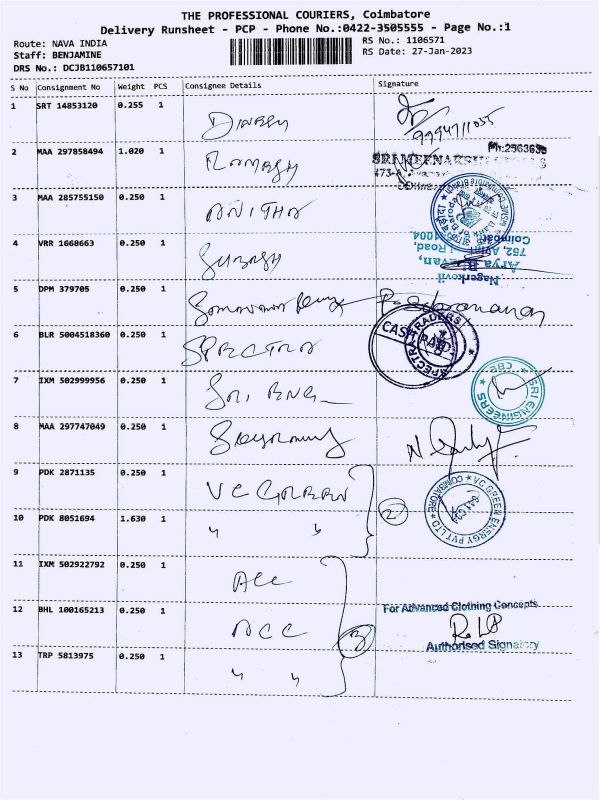 THE PROFESSIONAL COURIERS, Coimbatore
Delivery Runsheet - PCP - Phone No.:0422-3505555 - Page No.:1
Route: NAVA INDIA
RS No.: 1106571
Staff: BENJAMINE
RS Date: 27-Jan-2023
DRS No.: DCJB110657101
S No Consignment No Weight PCS Consignee Details Signature
1 SRT 14853120 0.255 1 Dinesh
9994711035
2 MAA 297858494 1.020 1 Ramesh
Ph:2563636
3 MAA 285755150 0.250 1 Anitha
4 VRR 1668663 0.250 1 Subash
752, Road,
Coimbatore
Nagerkovil
5 DPM 379705 0.250 1
6 BLR 5004518360 0.250 1 SPECTRA
CASH PAID
SPECTRA TRADERS
7 IXM 502999956 0.250 1 Sri ENG
SRI ENGINEERS
CBE
8 MAA 297747049 0.250 1
9 PDK 2871135 0.250 1 VC GREEN
2
VC GREEN ENERGY PVT LTD
COIMBATORE
10 PDK 8051694 1.630 1 " "
11 IXM 502922792 0.250 1 ACC
12 BHL 100165213 0.250 1 ACC
3
For Advanced Clothing Concepts
Authorised Signatory
13 TRP 5813975 0.250 1 " "